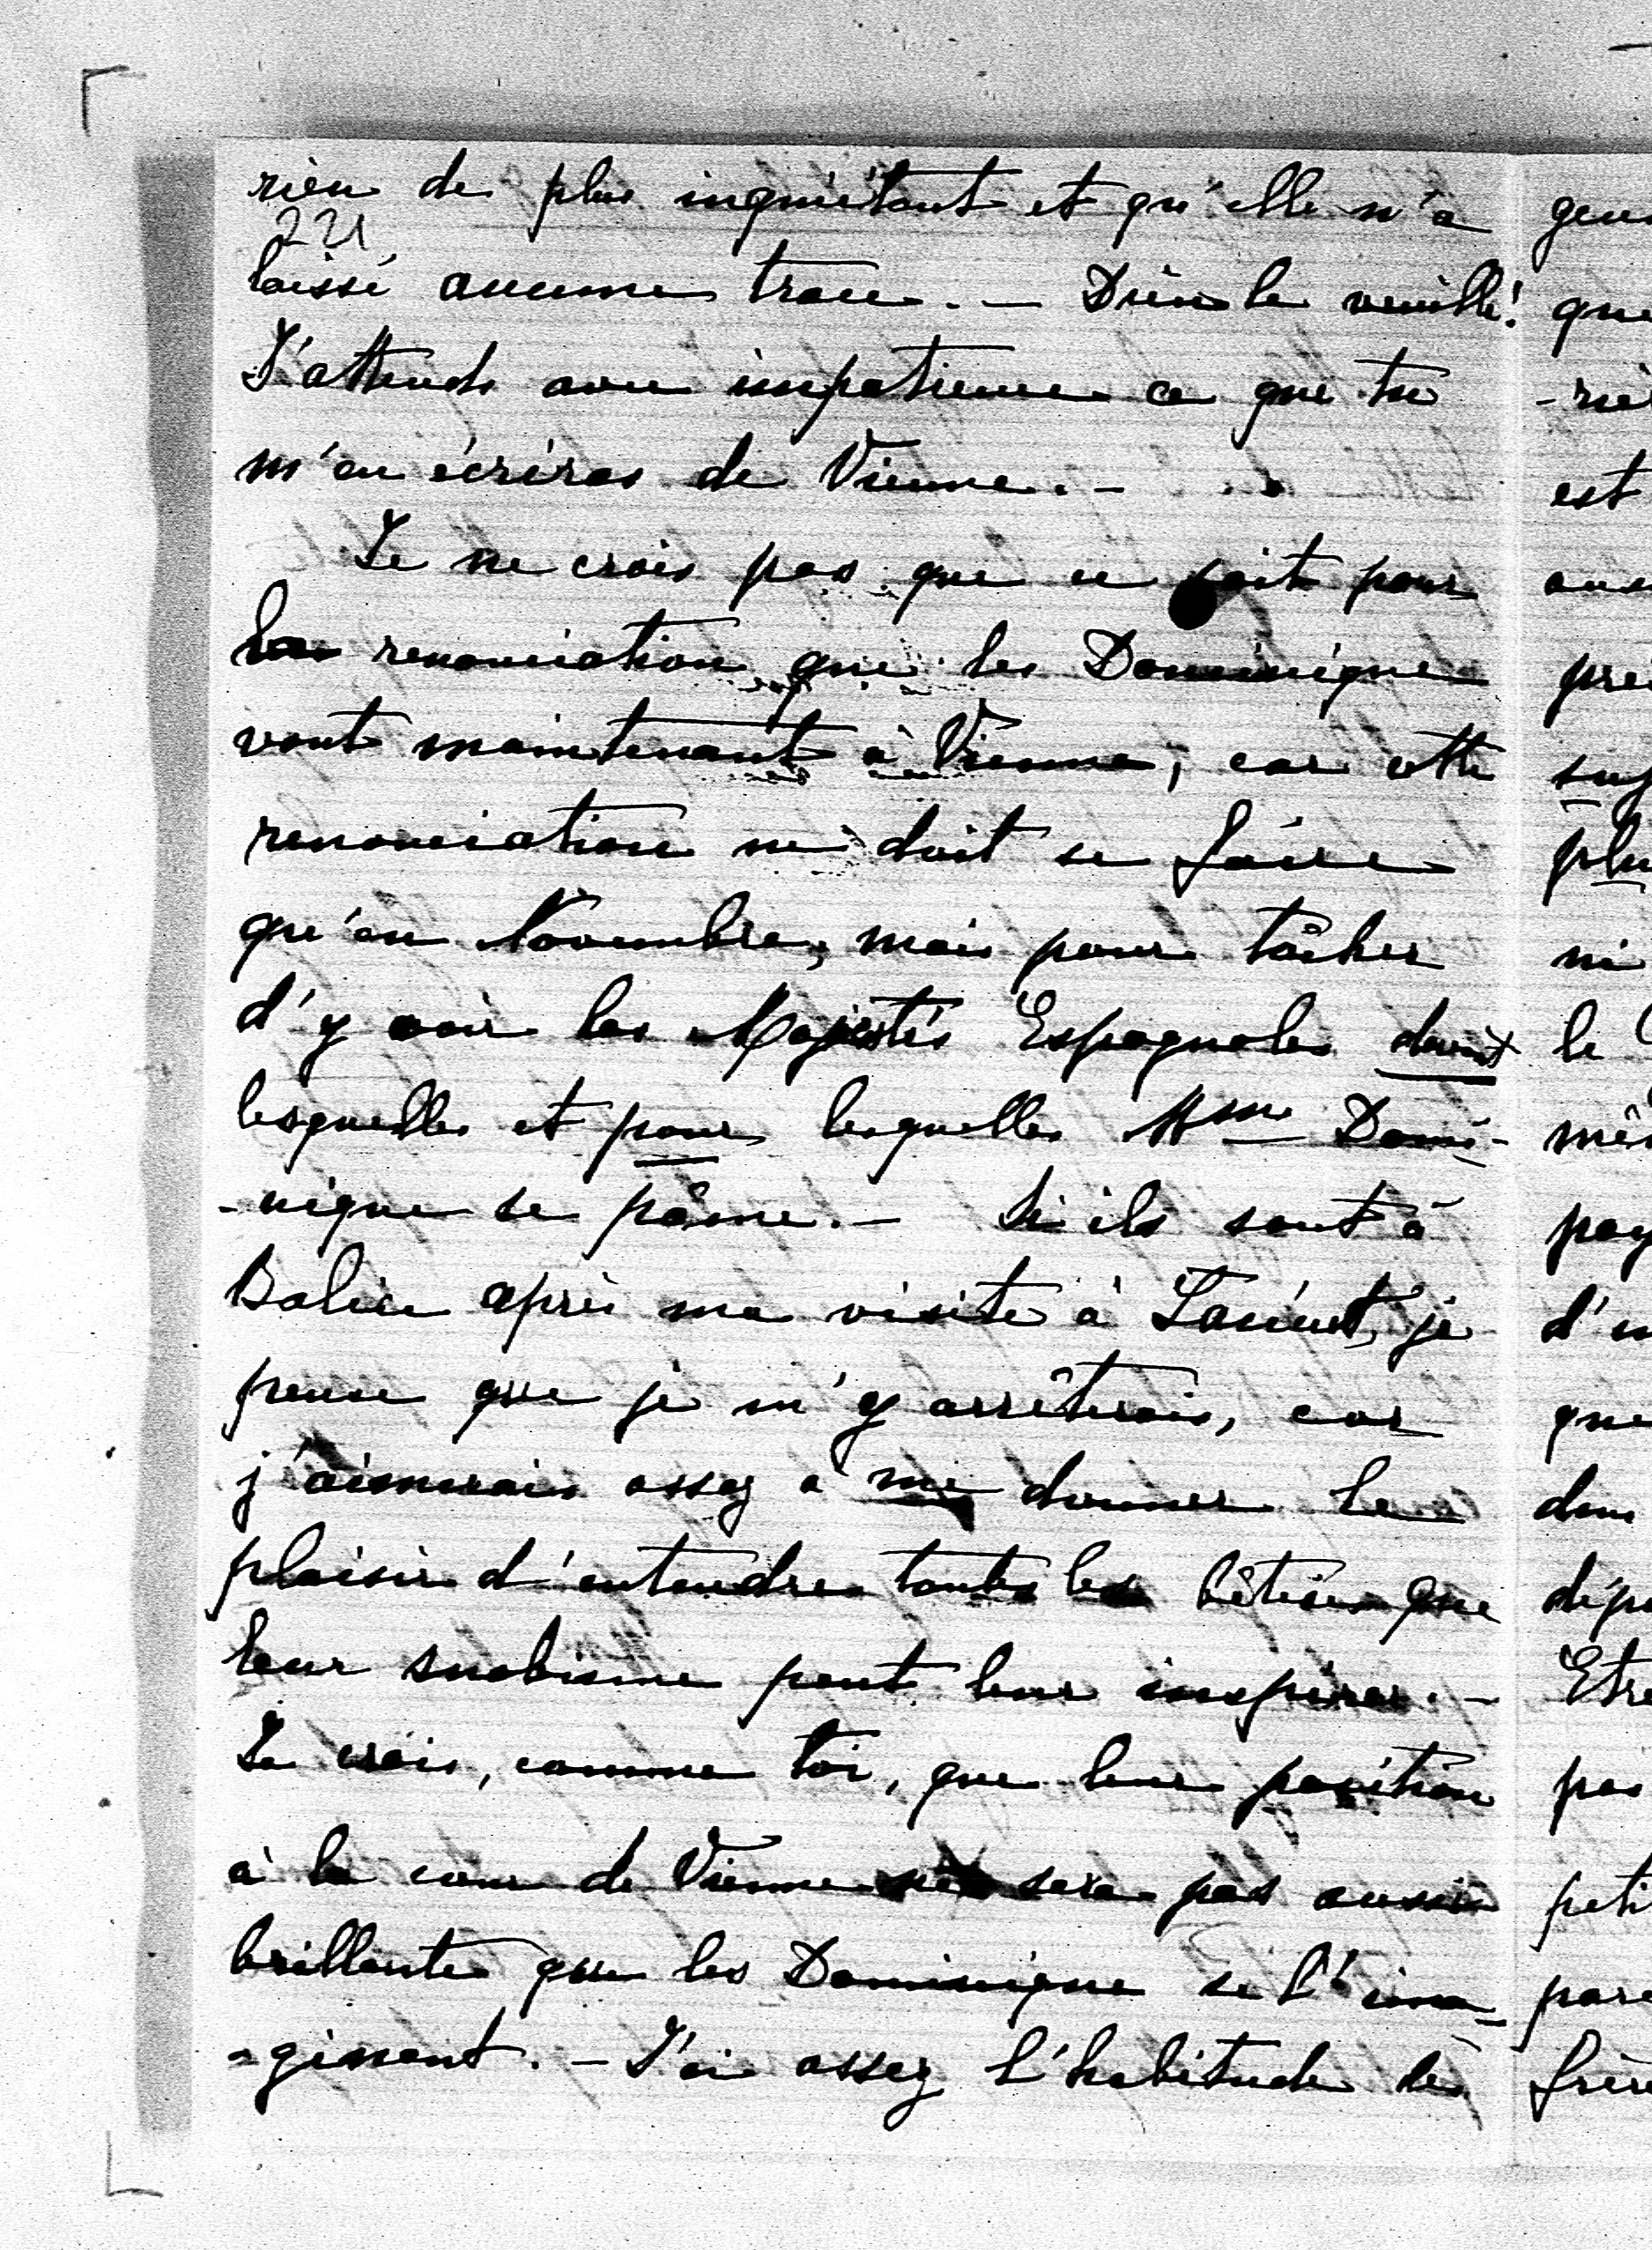 rien de plus inquiétant et qu'elle n'a
221
laissé aucune trace. — Dieu le veuille!
J'attends avec impatience ce que tu
m'en écriras de Vienne. —
Je ne crois pas que ce soit pour
la renonciation que les Dominique
vont maintenant à Vienne, car cette
renonciation ne doit se faire
qu'en Novembre, mais pour tâcher
d'y voir les Majestés Espagnoles devant
lesquelles et pour lesquelles Mme Domi-
-nique se pâme. — Si ils sont à
Balice après ma visite à Łańcut, je
pense que je m'y arrêterais, car
j'aimerais assez à me donner le
plaisir d'entendre toutes les bêtises que
leur snobisme peut leur inspirer. —
Je crois, comme toi, que leur position
à la cour de Vienne ne sera pas aussi
brillante que les Dominique se l'ima-
-ginent. — J'ai assez l'habitude de
que
-riè
est
le
pas